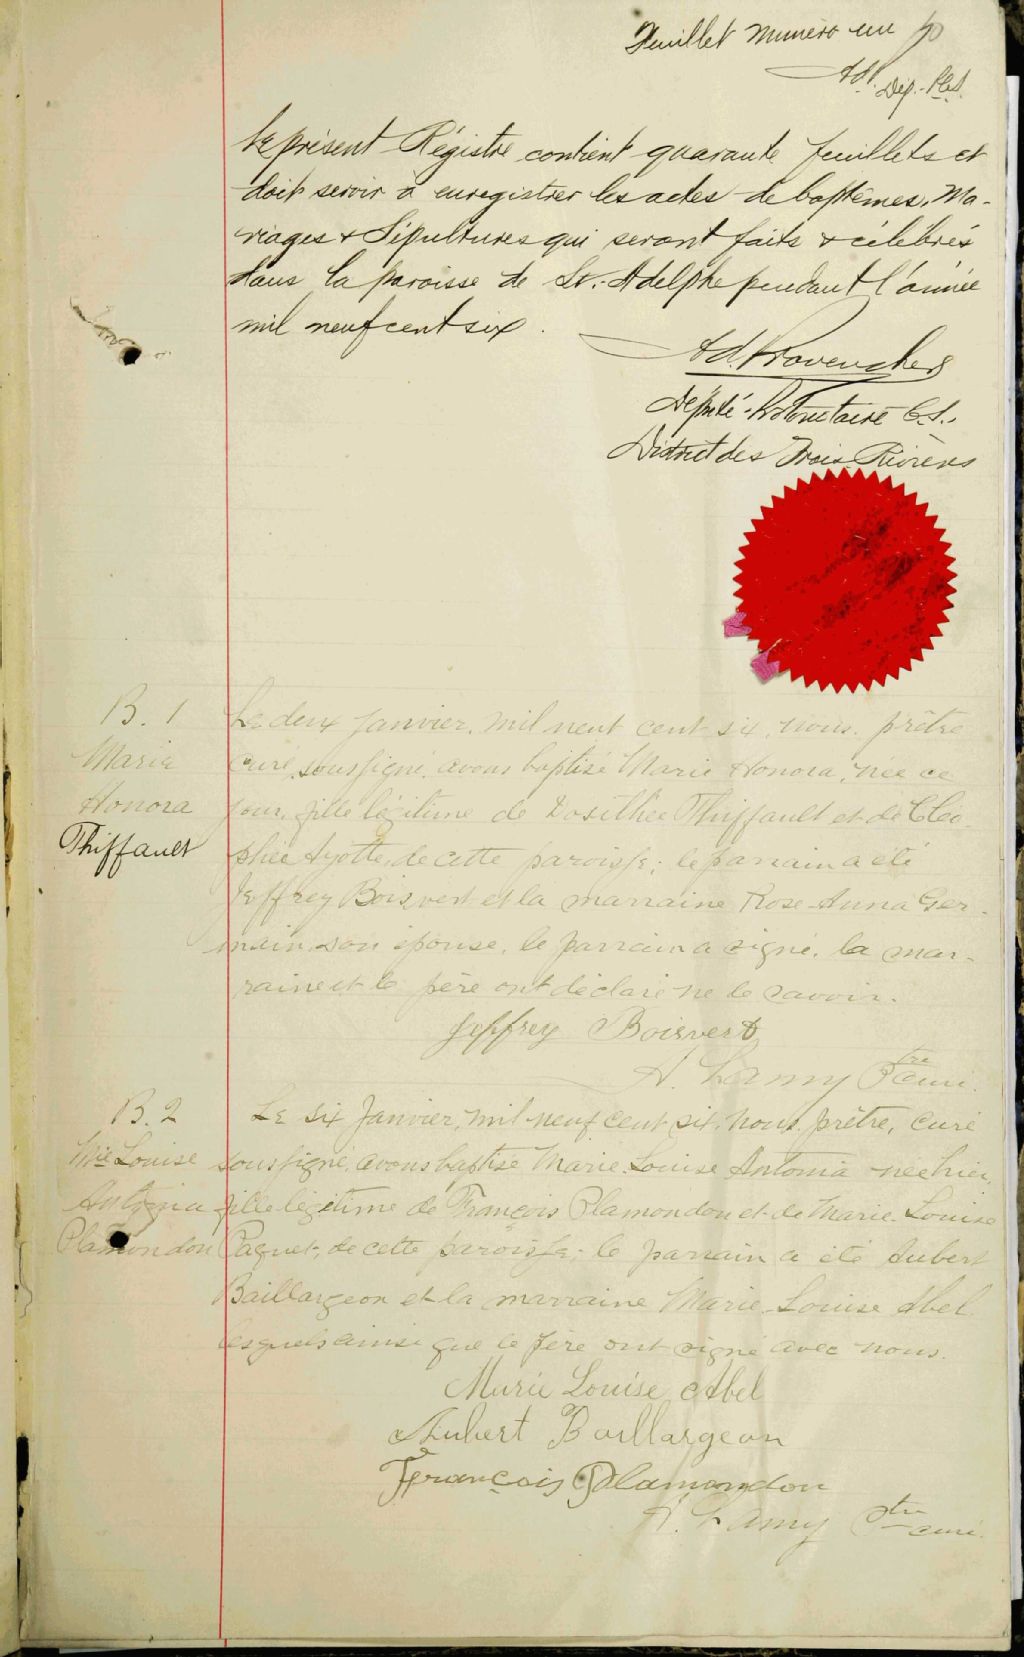 Feuillet numéro un
Ad P. Dép.-Pt.
Le présent Régistre contient quarante feuillets et
doit servir à enregistrer les actes de baptêmes, Ma-
riages & Sépultures qui seront faits & célébrés
dans la paroisse de St.-Adelphe pendant l'année
mil neuf cent six.
Ad. Provencher
Député-Protonotaire C.S.
District des Trois Rivières
B. 1
Marie
Honora
Thiffault
Le deux Janvier, mil neuf cent six, nous, prêtre
curé, soussigné, avons baptisé Marie Honora, née ce
jour, fille légitime de Dosithée Thiffault et de Cléo-
phée Ayotte, de cette paroisse; le parrain a été
Jeffrey Boisvert et la marraine Rose-Anna Ger-
main, son épouse. le parrain a signé, la mar-
raine et le père ont déclaré ne le savoir.
Jeffrey Boisvert
A. Lamy Ptre curé.
B. 2
Mie Louise
Antonia
Plamondon
Le six Janvier, mil neuf cent six, nous, prêtre, curé
soussigné, avons baptisé Marie-Louise Antonia née hier,
fille légitime de François Plamondon et de Marie-Louise
Paquet, de cette paroisse; le parrain a été Aubert
Baillargeon et la marraine Marie-Louise Abel
lesquels ainsi que le père ont signé avec nous.
Marie Louise Abel
Aubert Baillargeon
François Plamondon
A. Lamy Ptre curé.